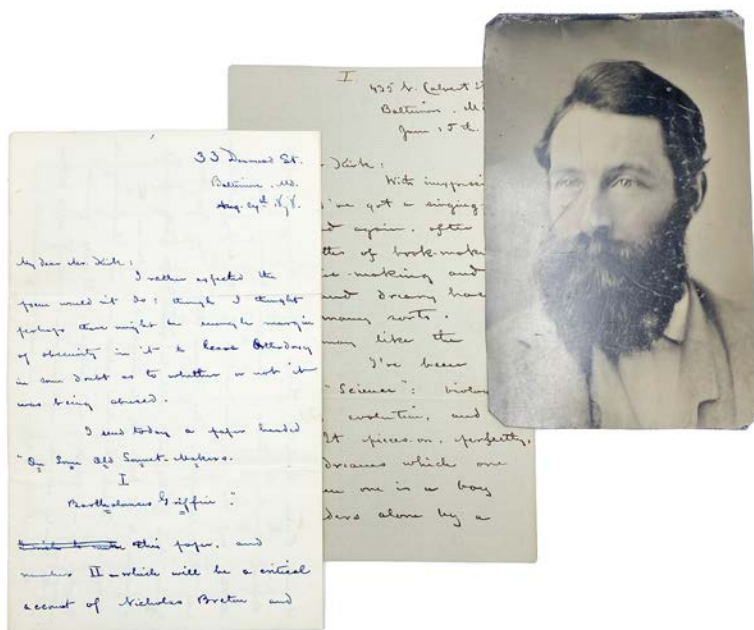 33 Denmead St.
Baltimore, Md.
Aug. 29th 1878.
My dear Mr. Kirk:
I rather expected the
poem would n't do: though I thought
perhaps there might be enough margin
of obscurity in it to leave Orthodoxy
in some doubt as to whether or not it
was being abused.
I send today a paper headed
"On Some Old Sonnet-Makers.
I
Bartholomew Griffin".
this paper, and
number II – which will be a critical
account of Nicholas Breton and
I
435 N. Calvert St
Baltimore, Md
June 15th
Kirk:
With inexpressi
I've got a singing-
again, after
of book-make
-making and
dreary
many sorts.
may like the
I've been
"Science": biolo
evolution, and
It pieces on, perfectly,
dreams which one
one is a boy
alone by a